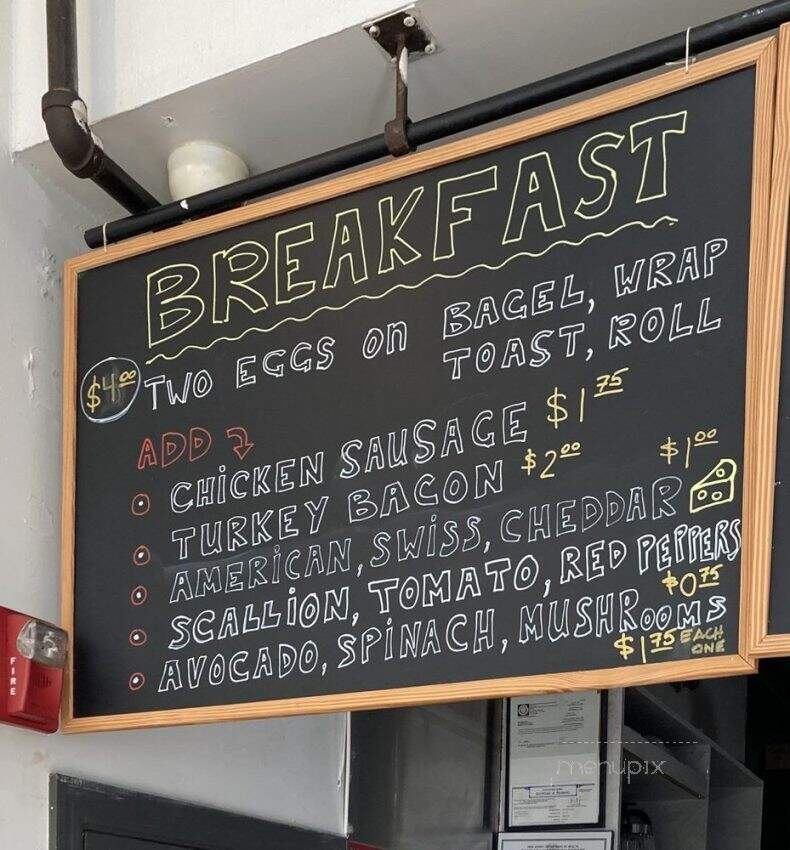 BREAKFAST
$4.00 TWO EGGS on BAGEL, WRAP
TOAST, ROLL
ADD
CHiCKEN SAUSAGE $1.75
TURKEY BACON $2.00
AMERiCAN, SWiSS, CHEDDAR $1.00
SCALLiON, TOMATO, RED PEPPERS
$0.75
AVOCADO, SPiNACH, MUSHROOMS
$1.75 EACH
ONE
FIRE
menupix